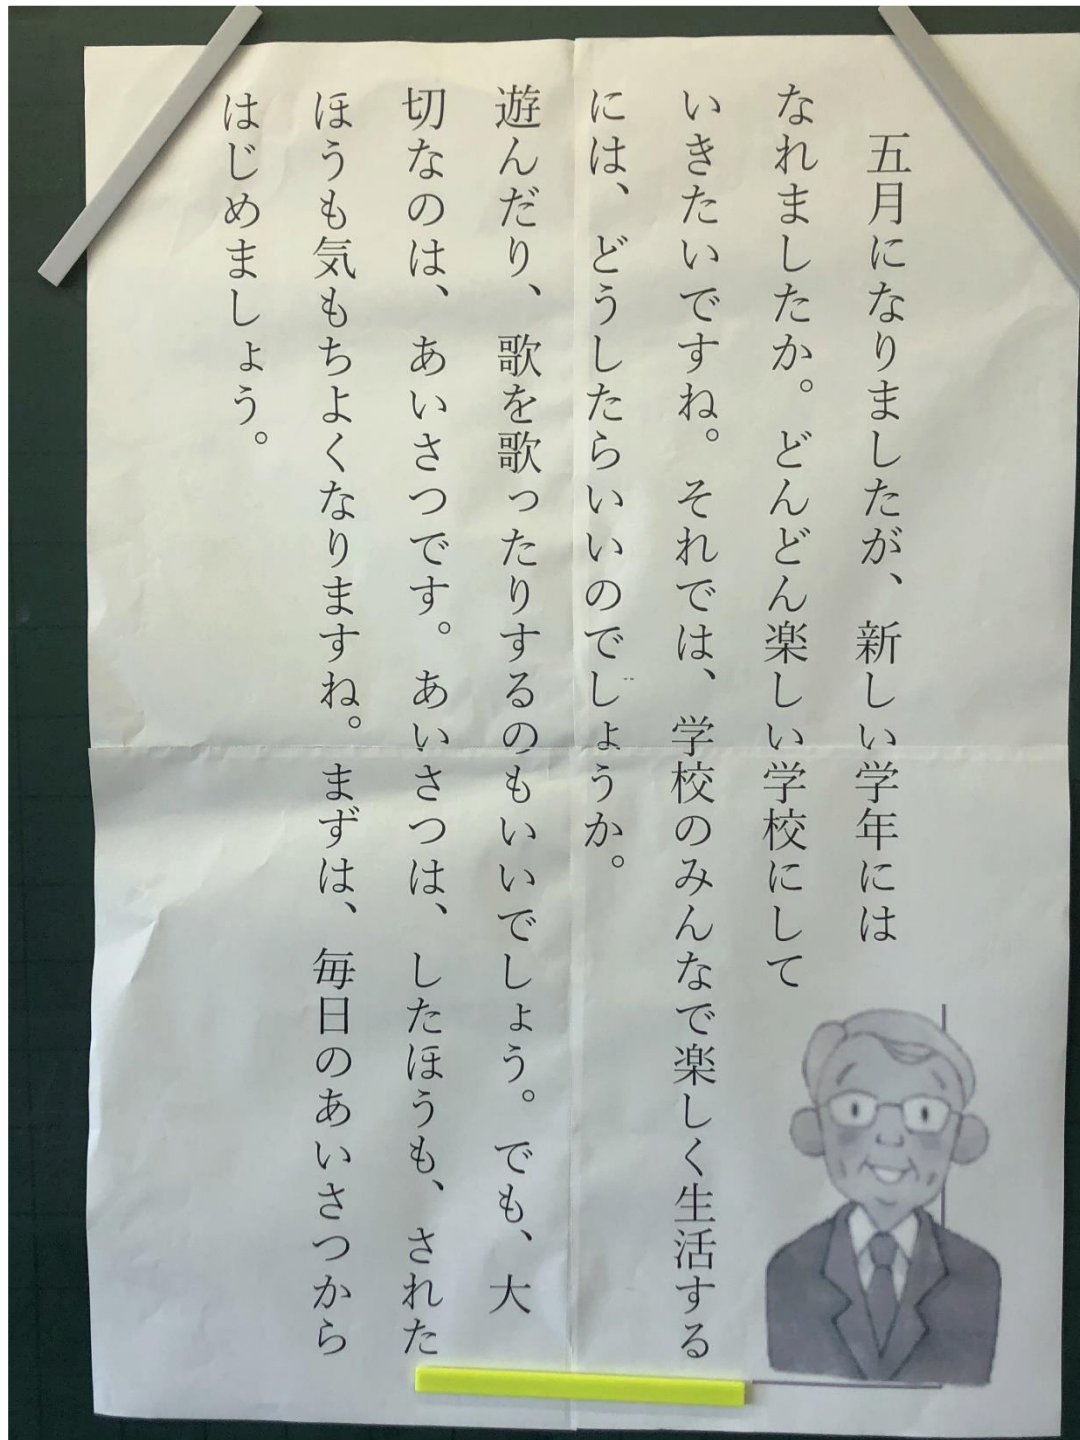 五月になりましたが、新しい学年には
なれましたか。どんどん楽しい学校にして
いきたいですね。それでは、学校のみんなで楽しく生活する
には、どうしたらいいのでしょうか。
遊んだり、歌を歌ったりするのもいいでしょう。でも、大
切なのは、あいさつです。あいさつは、したほうも、された
ほうも気もちよくなりますね。まずは、毎日のあいさつから
はじめましょう。